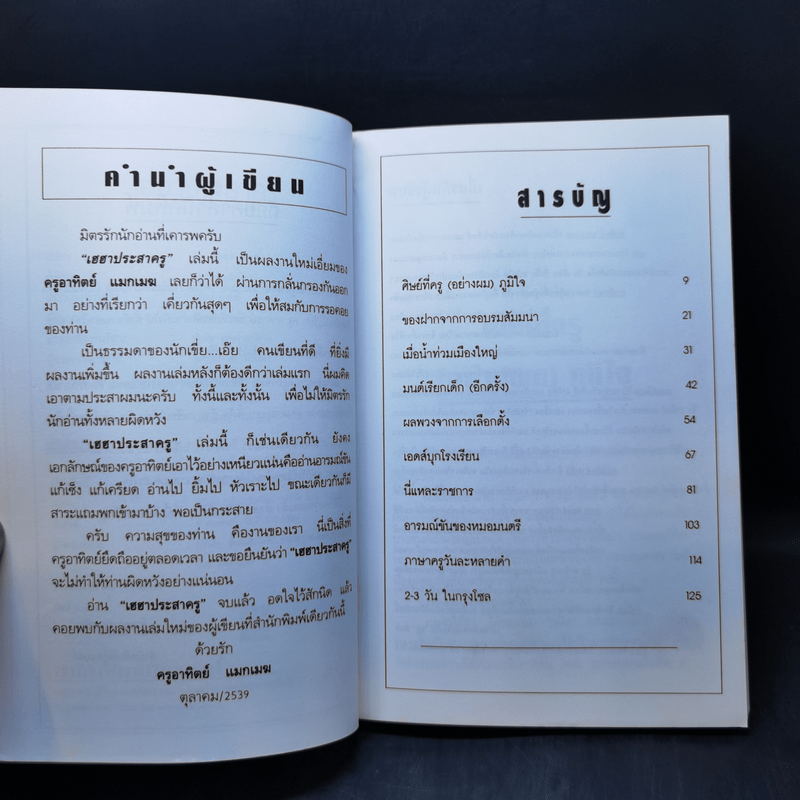 คำนำผู้เขียน
มิตรรักนักอ่านที่เคารพครับ
“เฮฮาประสาครู” เล่มนี้ เป็นผลงานใหม่เอี่ยมของ
ครูอาทิตย์ แมกเมฆ เลยก็ว่าได้ ผ่านการกลั่นกรองกันออก
มา อย่างที่เรียกว่า เคี่ยวกันสุดๆ เพื่อให้สมกับการรอคอย
ของท่าน
เป็นธรรมดาของนักเขี่ย...เอ๊ย คนเขียนที่ดี ที่ยิ่งมี
ผลงานเพิ่มขึ้น ผลงานเล่มหลังก็ต้องดีกว่าเล่มแรก นี่ผมคิด
เอาตามประสาผมนะครับ ทั้งนี้และทั้งนั้น เพื่อไม่ให้มิตรรัก
นักอ่านทั้งหลายผิดหวัง
“เฮฮาประสาครู” เล่มนี้ ก็เช่นเดียวกัน ยังคง
เอกลักษณ์ของครูอาทิตย์เอาไว้อย่างเหนียวแน่นคืออ่านอารมณ์ขัน
แก้เซ็ง แก้เครียด อ่านไป ยิ้มไป หัวเราะไป ขณะเดียวกันก็มี
สาระแถมพกเข้ามาบ้าง พอเป็นกระสาย
ครับ ความสุขของท่าน คืองานของเรา นี่เป็นสิ่งที่
ครูอาทิตย์ยึดถืออยู่ตลอดเวลา และขอยืนยันว่า “เฮฮาประสาครู”
จะไม่ทำให้ท่านผิดหวังอย่างแน่นอน
อ่าน “เฮฮาประสาครู” จบแล้ว อดใจไว้สักนิด แล้ว
คอยพบกับผลงานเล่มใหม่ของผู้เขียนที่สำนักพิมพ์เดียวกันนี้
ด้วยรัก
ครูอาทิตย์ แมกเมฆ
ตุลาคม/2539
สารบัญ
ศิษย์ที่ครู (อย่างผม) ภูมิใจ 9
ของฝากจากการอบรมสัมมนา 21
เมื่อน้ำท่วมเมืองใหญ่ 31
มนต์เรียกเด็ก (อีกครั้ง) 42
ผลพวงจากการเลือกตั้ง 54
เอดส์บุกโรงเรียน 67
นี่แหละราชการ 81
อารมณ์ขันของหมอมนตรี 103
ภาษาครูวันละหลายคำ 114
2-3 วัน ในกรุงโซล 125